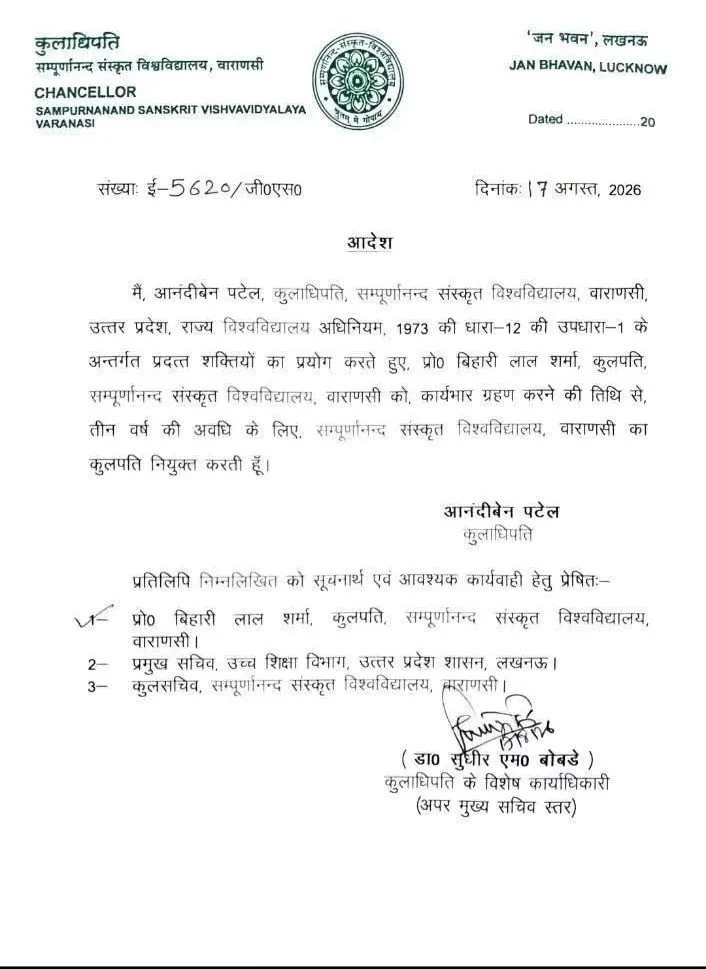 कुलाधिपति
सम्पूर्णानन्द संस्कृत विश्वविद्यालय, वाराणसी
CHANCELLOR
SAMPURNANAND SANSKRIT VISHVAVIDYALAYA
VARANASI
सम्पूर्णानन्द-संस्कृत-विश्वविद्यालयः
श्रुतम् मे गोपाय
'जन भवन', लखनऊ
JAN BHAVAN, LUCKNOW
Dated .....................20
संख्याः ई-5620/जी0एस0
दिनांकः 17 अगस्त, 2026
आदेश
मैं, आनंदीबेन पटेल, कुलाधिपति, सम्पूर्णानन्द संस्कृत विश्वविद्यालय, वाराणसी,
उत्तर प्रदेश, राज्य विश्वविद्यालय अधिनियम, 1973 की धारा-12 की उपधारा-1 के
अन्तर्गत प्रदत्त शक्तियों का प्रयोग करते हुए, प्रो0 बिहारी लाल शर्मा, कुलपति,
सम्पूर्णानन्द संस्कृत विश्वविद्यालय, वाराणसी को, कार्यभार ग्रहण करने की तिथि से,
तीन वर्ष की अवधि के लिए, सम्पूर्णानन्द संस्कृत विश्वविद्यालय, वाराणसी का
कुलपति नियुक्त करती हूँ।
आनंदीबेन पटेल
कुलाधिपति
प्रतिलिपि निम्नलिखित को सूचनार्थ एवं आवश्यक कार्यवाही हेतु प्रेषितः-
1- प्रो0 बिहारी लाल शर्मा, कुलपति, सम्पूर्णानन्द संस्कृत विश्वविद्यालय,
वाराणसी।
2- प्रमुख सचिव, उच्च शिक्षा विभाग, उत्तर प्रदेश शासन, लखनऊ।
3- कुलसचिव, सम्पूर्णानन्द संस्कृत विश्वविद्यालय, वाराणसी।
( डा0 सुधीर एम0 बोबडे )
कुलाधिपति के विशेष कार्याधिकारी
(अपर मुख्य सचिव स्तर)